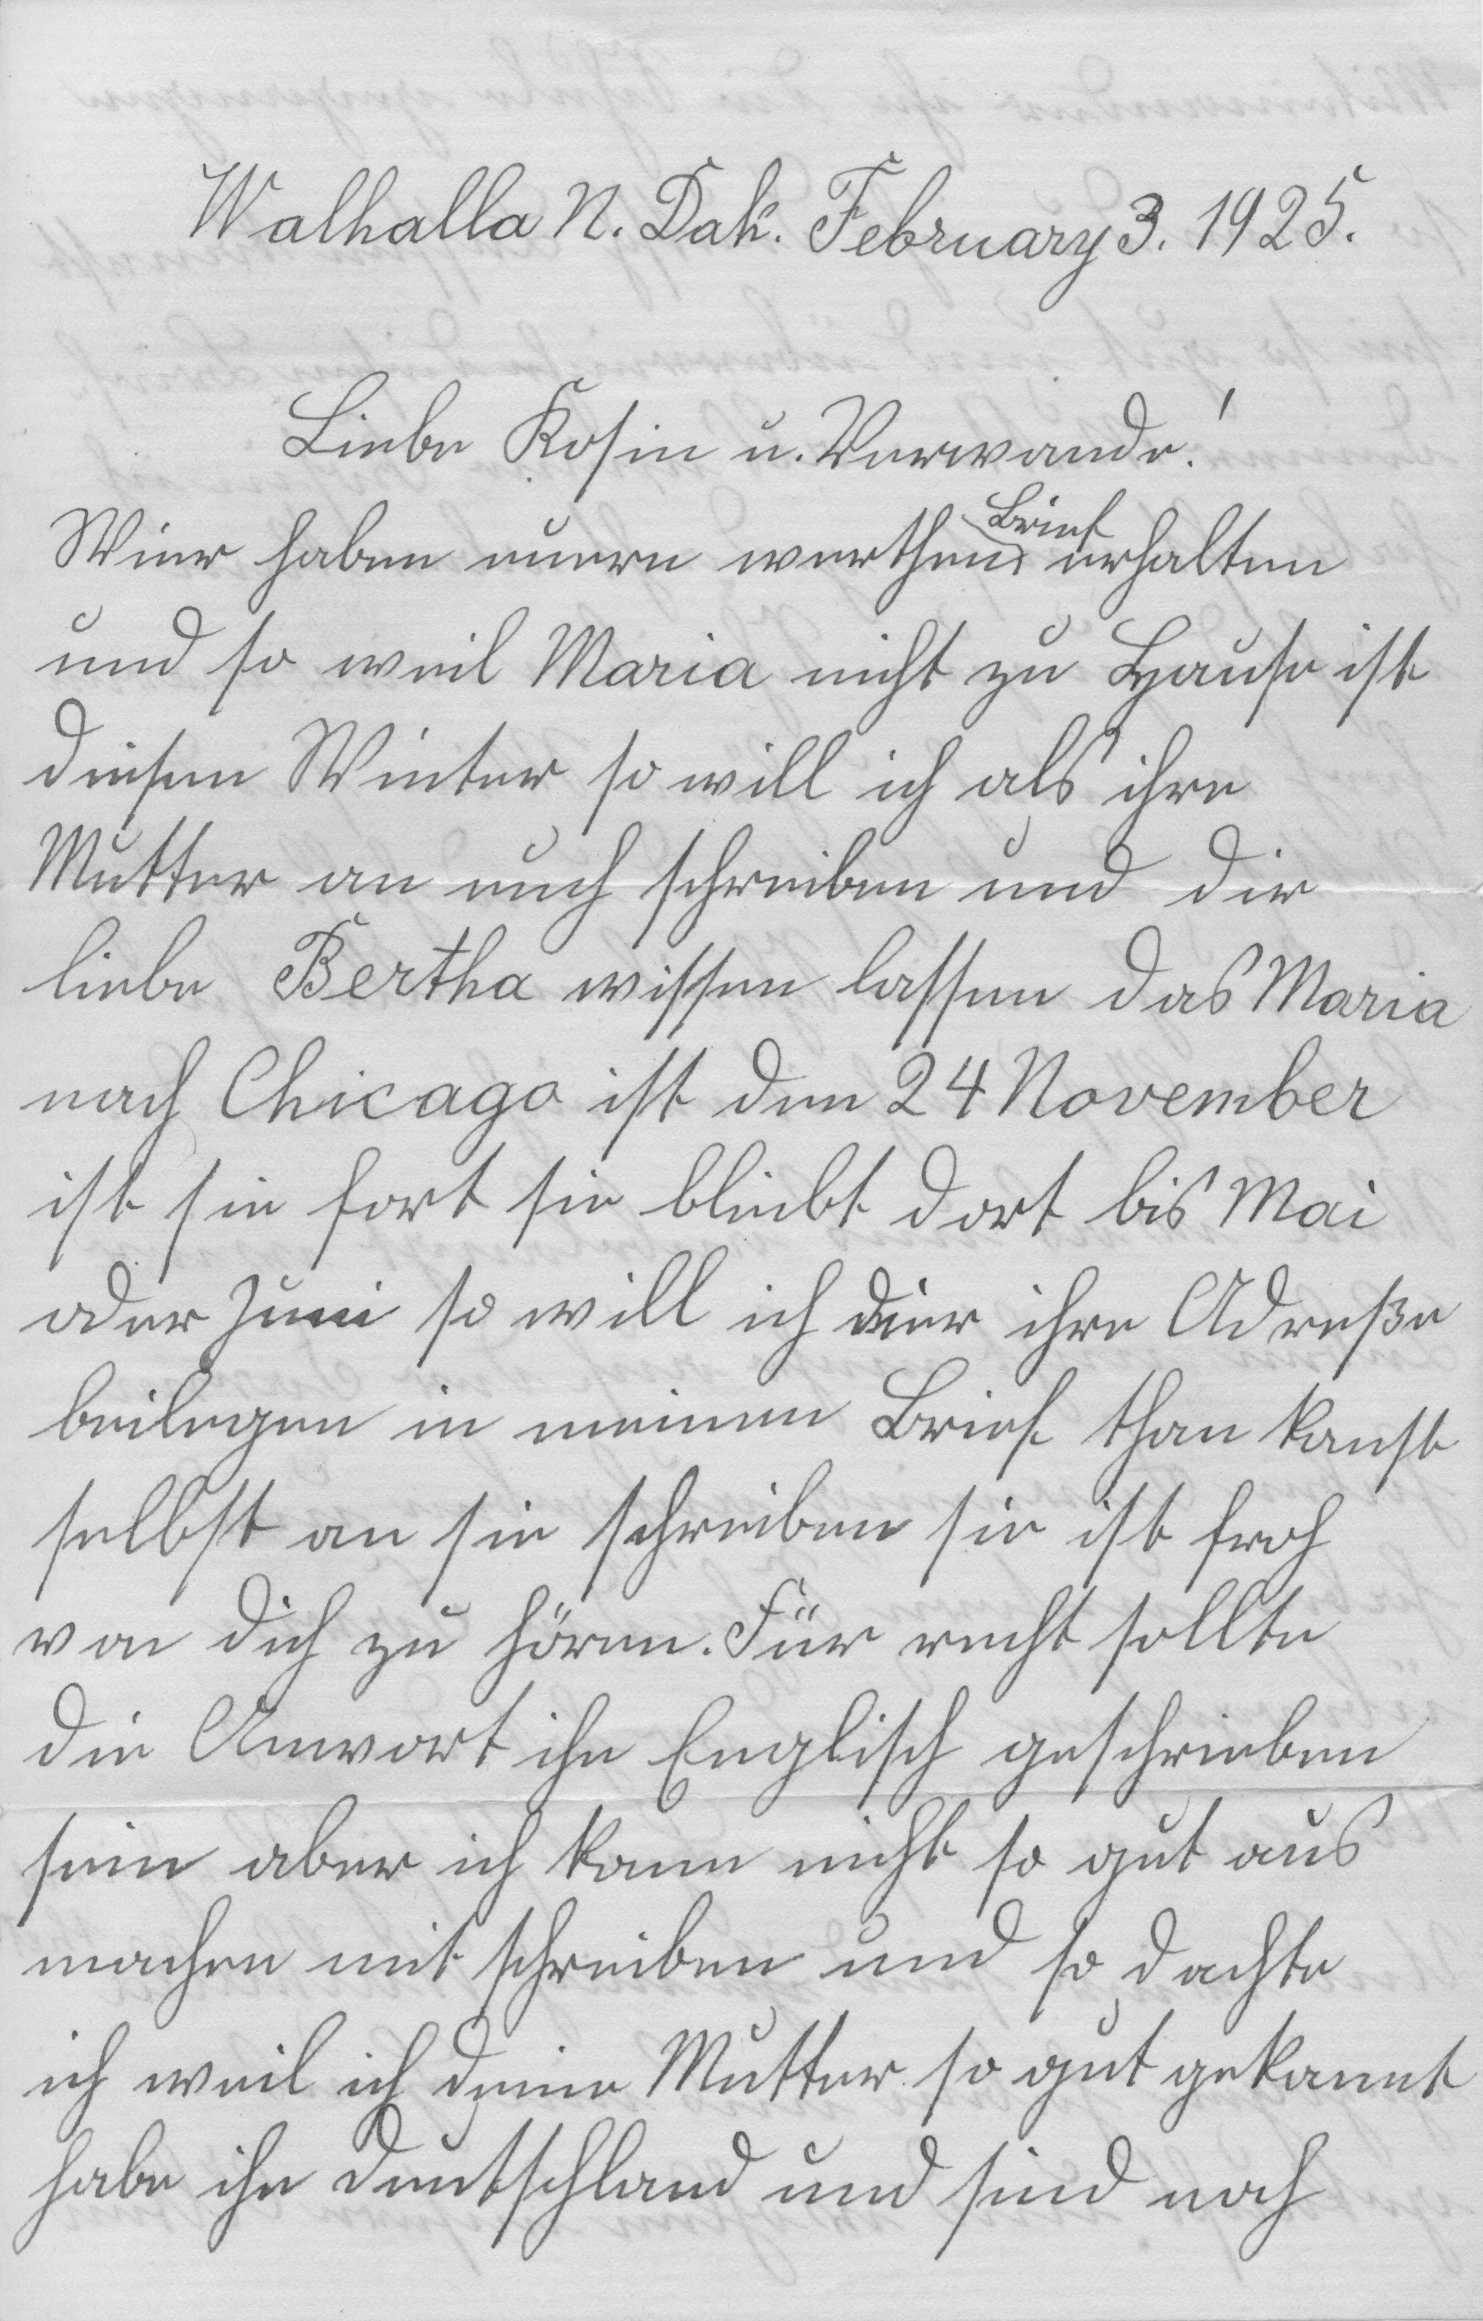 Walhalla N. Dak. February 3. 1925.
Liebe Kosin u. Verwande!
Wier haben euere werthen Brief erhalten
und so weil Maria nicht zu Hause ist
diesen Winter so will ich als ihre
Mutter an euch schreiben und dir
liebe Bertha wissen lassen das Maria
nach Chicago ist den 24 November
ist sie fort sie bleibt dort bis Mai
oder Juni so will ich dier ihre Adreße
beilegen in meinen Brief than kanst
selbst an sie schreiben sie ist froh
von dich zu hören. Für recht sollte
die Anwort ihn Englisch geschrieben
sein aber ich kann nicht so gut aus
machen mit schreiben und so dachte
ich weil ich deine Mutter so gut gekannt
habe ihn Deutschland und sind noch